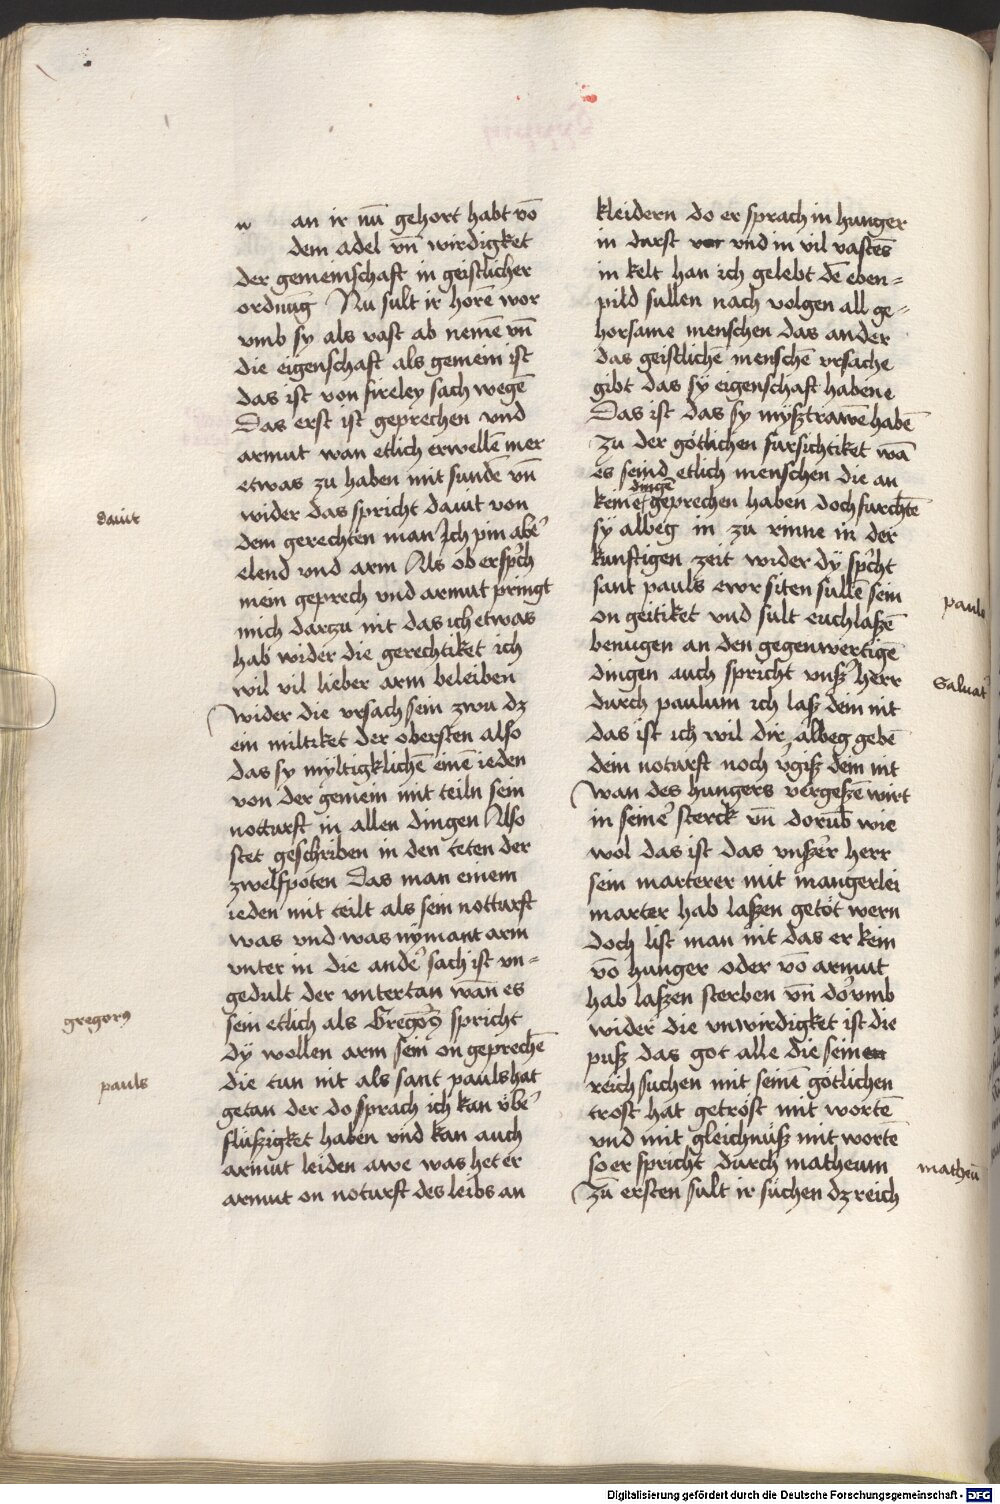 w an ir nu̅ gehort habt vo̅
dem adel vn̅ wirdigket
der gemeinschaft in geistlicher
ordnu̅g Nu sult ir hore̅ wor
vmb sy als vast ab neme̅ vn̅
die eigenschaft als gemein ist
das ist von fireley sach wege̅
Das erst ist geprechen vnd
armut wan etlich erwelle̅ mer
etwas zu haben mit sunde̅ vn̅
wider das spricht dauit von
dem gerechten man Ich pin abe᷑
elend vnd arm Als ob er sp᷑ch
mein geprech vnd armut pringt
mich darzu nit das ich etwas
hab wider die gerechtiket ich
wil vil lieber arm beleiben
Wider die vrsach sein zwu dz
ein miltiket der obersten also
das sy myltigkliche̅ eine̅ ieden
von der gemein mit teiln sein
notturft in allen dingen Also
stet geschriben in den teten der
zwelfpoten Das man einem
ieden mit teilt als sein notturft
was vnd was nymant arm
vnter in die ande᷑ sach ist vn=
gedult der vntertan wa̅n es
sein etlich als Grego᷑9 spricht
dÿ wollen arm sein on gepreche̅
die tun nit als sant pauls hat
getan der do sprach ich kan v̈be᷑
flüßigket haben vnd kan auch
armut leiden awe was het er
armut on noturft des leibs an
dauit
gregorg
pauls
kleidern do er sprach in hunger
in durst vor vnd in vil vaste̅s
in kelt han ich gelebt de̅ eben=
pild sullen nach volgen all ge=
horsame menschen das ander
das geistliche̅ mensche̅ vrsache
gibt das sÿ eigenschaft habene
Das ist das sy myßtrawe̅ habe̅
zu der götlichen fursichtiket wa̅
es seind etlich menschen die an
keine̅ dinge̅ geprechen haben doch furchte̅
sy albeg in zu rinne in der
kunftigen zeit wider dÿ sp᷑cht
sant pauls ewr siten sulle̅ sein
on geitiket vnd sult euch laße̅
benugen an den gegenwertige̅
dingen auch spricht vnß᷑ herr
durch paulum ich laß dein nit
das ist ich wil dir albeg gebe̅
dein noturft noch v᷑giß dein nit
Wan des hungers vergeße̅ wirt
in seine᷑ sterck vn̅ dorub̅ wie
wol das ist das vnßer herr
sein marterer mit mangerlei
marter hab laßen getöt wern
doch list man nit das er kein
vo̅ hunger oder vo̅ armut
hab laßen sterben vn̅ do᷑vmb
wider die vnwirdigket ist die
puß das got alle die seinen
reich suchen mit seine̅ götlichen
trost hat getröst mit worte̅
vnd mit gleichnuß mit worte̅
so er spricht durch matheum
Zu̅ ersten sult ir suchen dz reich
pauls
Saluat᷑
matheu̅
Digitalisierung gefördert durch die Deutsche Forschungsgemeinschaft - DFG